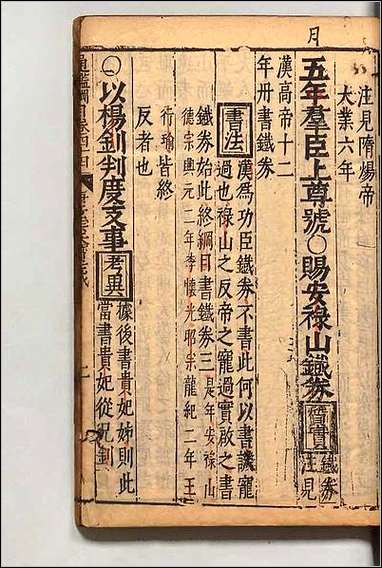 月
注見隋煬帝
大業六年
五年羣臣上尊號○賜安祿山鐵券
鐵券
注見
漢高帝十二
年卅書鐵券
書法
漢為功臣鐵券不書此何以書譏寵
過也祿山之反帝之寵過實啟之書
鐵券始此終綱目書鐵券三是年安祿山
德宗興元二年李懷光昭宗龍紀二年王
行瑜皆終
反者也
○以楊釗判度支事
考異
據後書貴妃姊則此
當書貴妃從兄釗